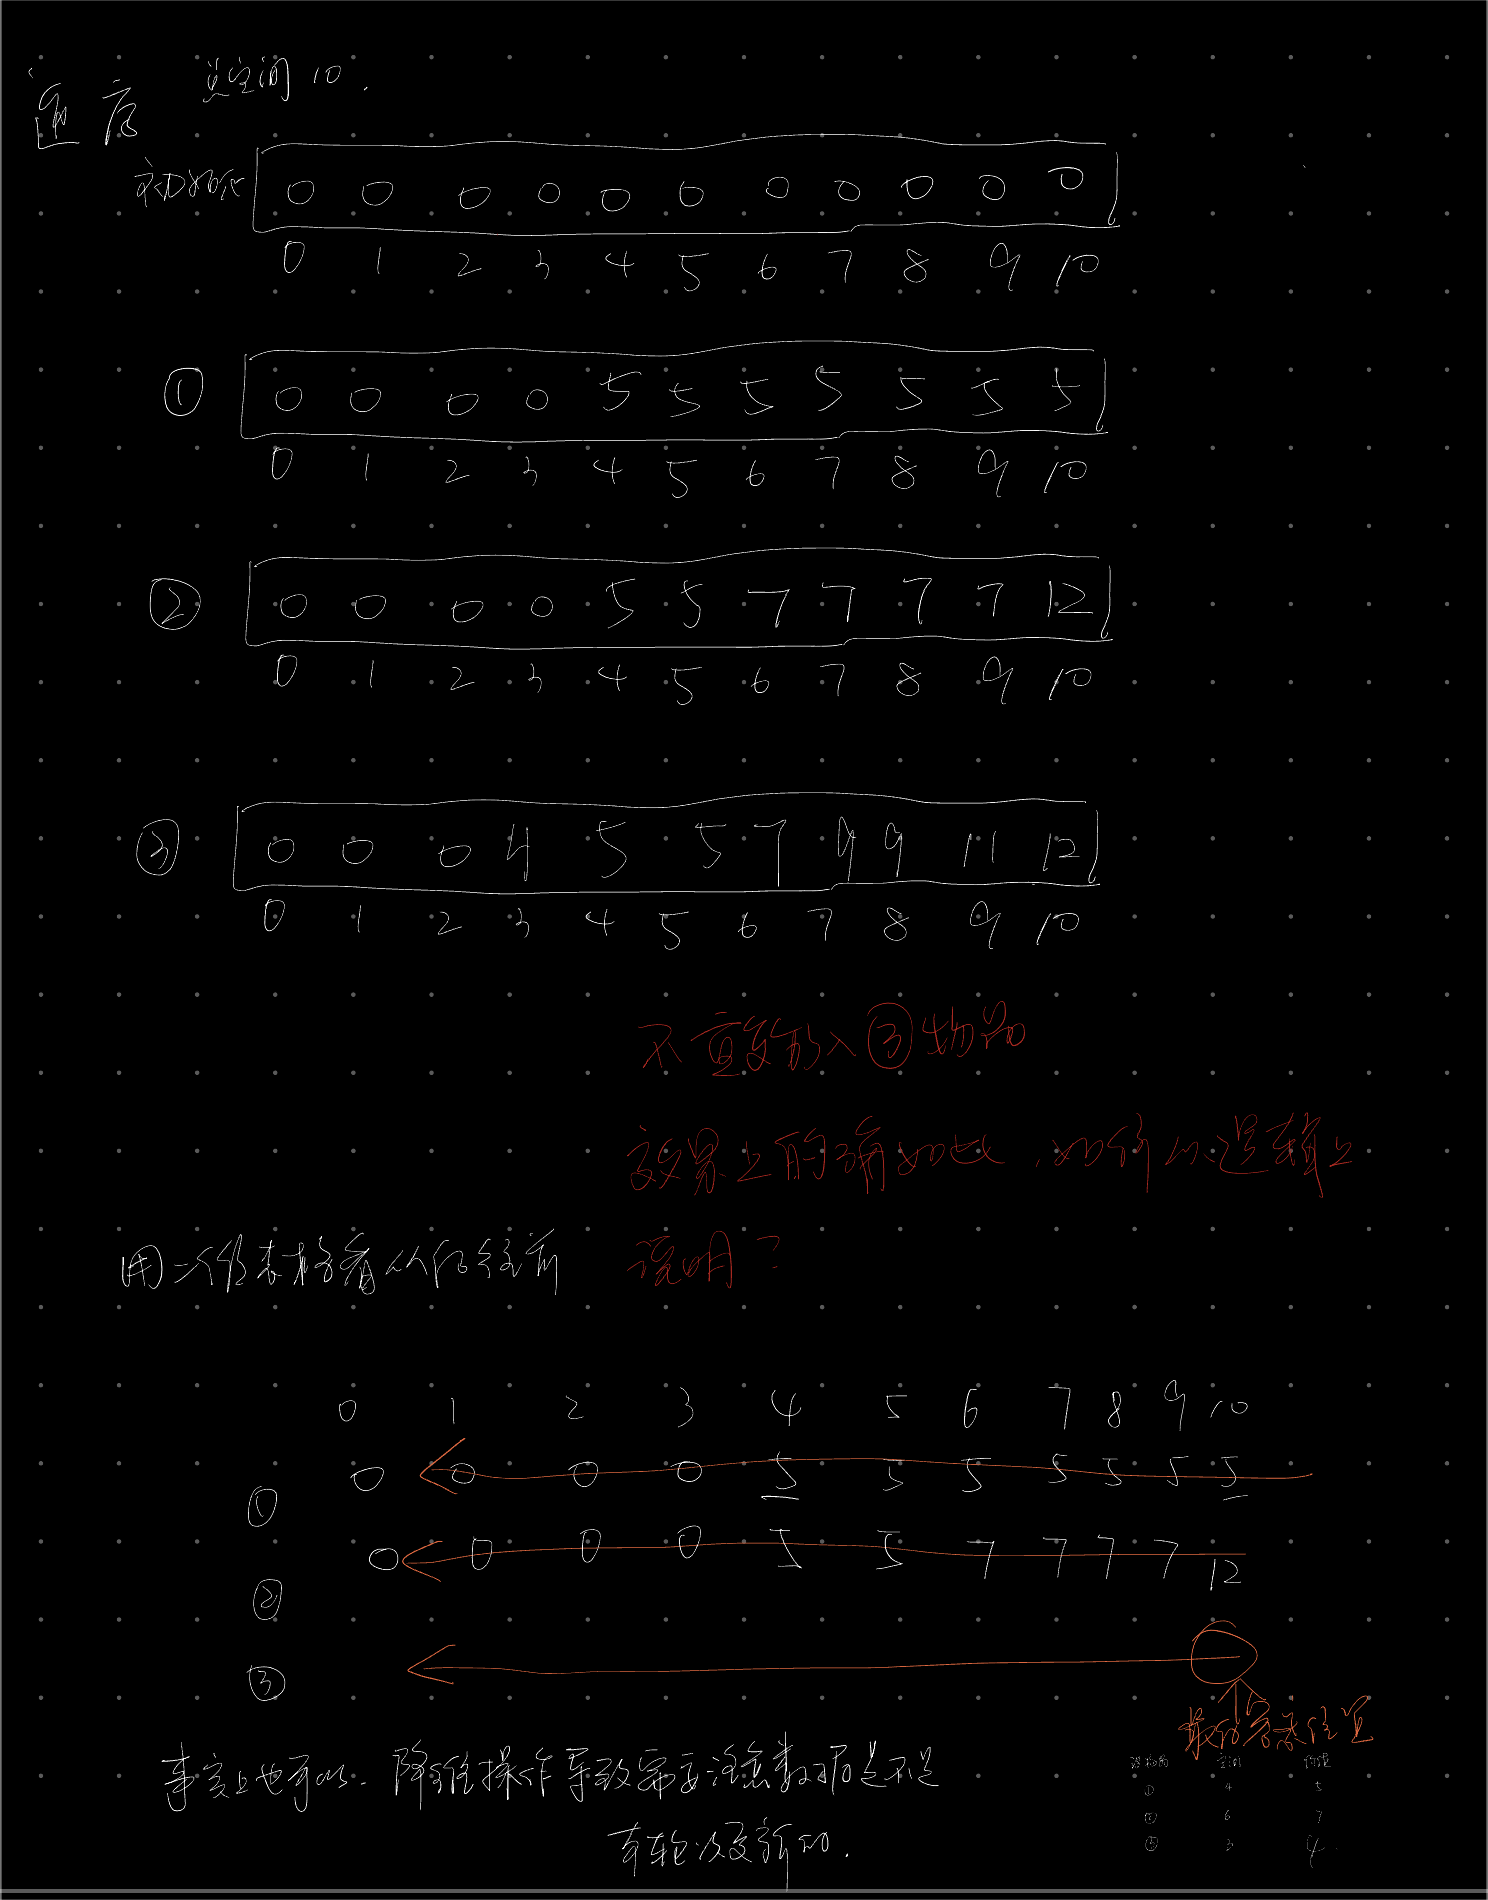 逆序 总空间10.
初始化 0 0 0 0 0 0 0 0 0 0 0
0 1 2 3 4 5 6 7 8 9 10
① 0 0 0 0 5 5 5 5 5 5 5
0 1 2 3 4 5 6 7 8 9 10
② 0 0 0 0 5 5 7 7 7 7 12
0 1 2 3 4 5 6 7 8 9 10
③ 0 0 0 4 5 5 7 9 9 11 12
0 1 2 3 4 5 6 7 8 9 10
不重复放入③物品
效果上的确如此,如何从逻辑上
说明?
用二维表格看从后往前
0 1 2 3 4 5 6 7 8 9 10
① 0 0 0 0 5 5 5 5 5 5 5
② 0 0 0 0 5 5 7 7 7 7 12
③
最终答案位置
事实上也可以.降维操作导致需要注意数据是不是
本轮次更新的.
物品 空间 价值
① 4 5
② 6 7
③ 3 4